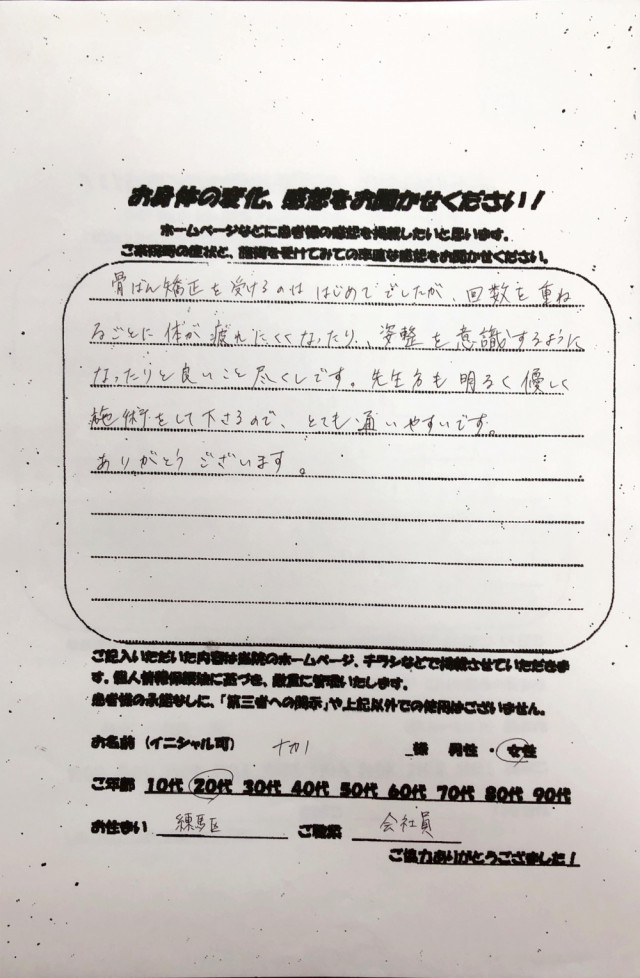 お身体の変化、感想をお聞かせください！
ホームページなどに患者様の感想を掲載したいと思います。
ご来院時の症状と、施術を受けてみての率直な感想をお聞かせください。
骨ばん矯正を受けるのは はじめてでしたが、回数を重ね
るごとに体が疲れにくくなったり、姿整を意識するように
なったりと良いこと尽くしです。先生方も明るく優しく
施術をして下さるので、とても通いやすいです。
ありがとうございます。
ご記入いただいた内容は当院のホームページ、チラシなどで掲載させていただきま
す。個人情報保護法に基づき、厳重に管理いたします。
患者様の承諾なしに、「第三者への開示」や上記以外での使用はございません。
お名前（イニシャル可） 様 男性・女性
ご年齢 10代 20代 30代 40代 50代 60代 70代 80代 90代
お住まい 練馬区 ご職業 会社員
ご協力ありがとうございました！